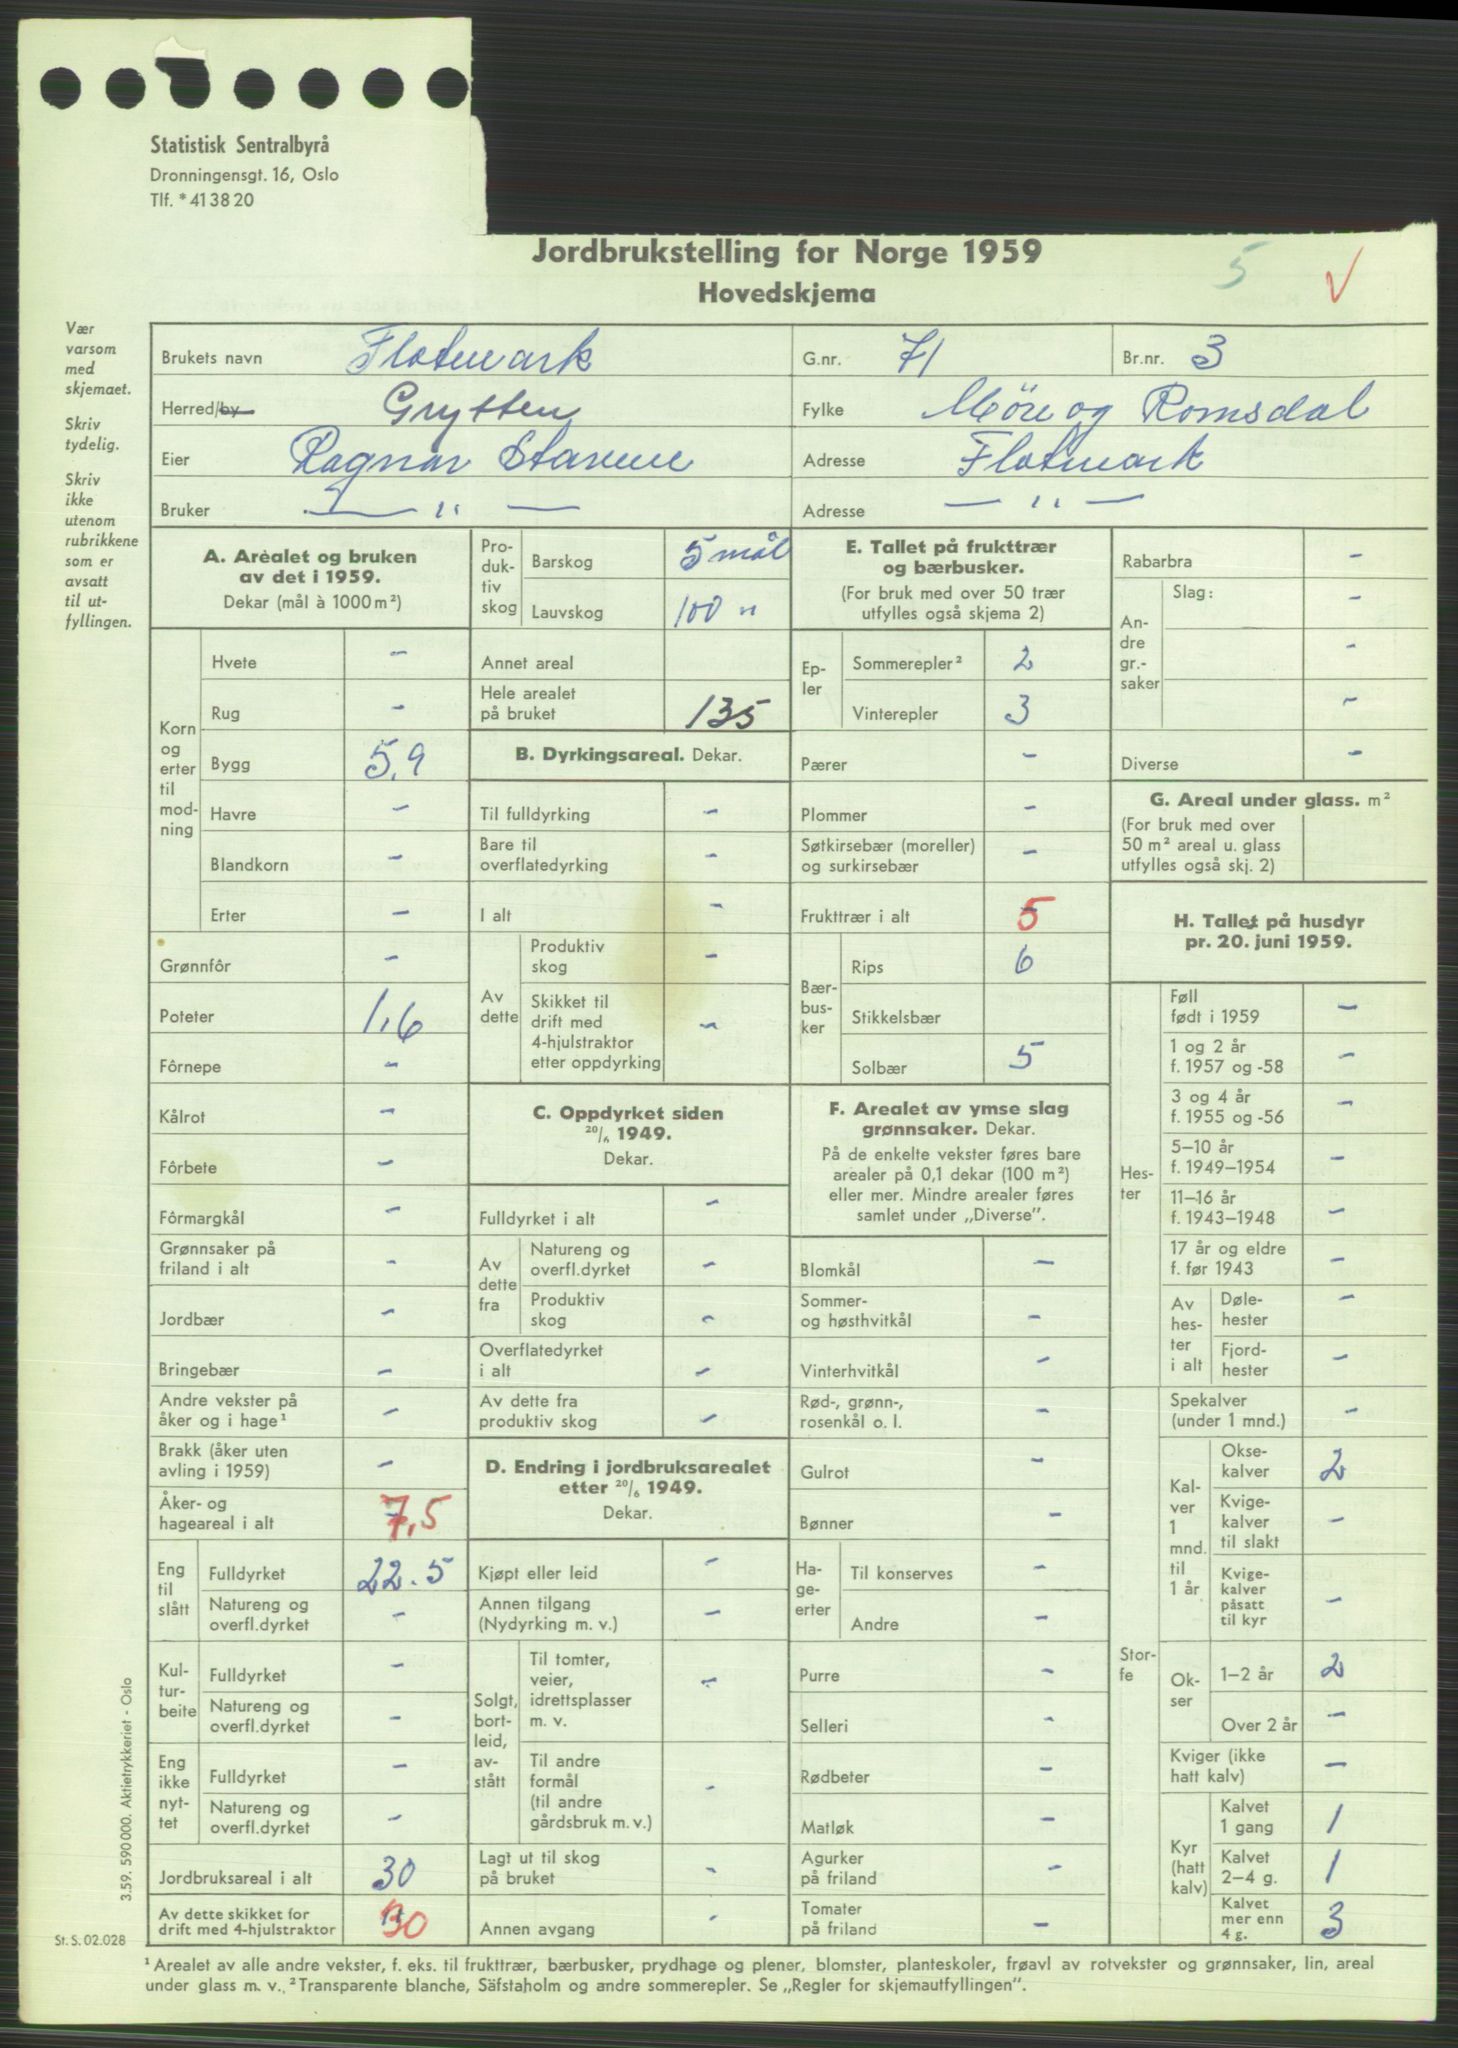 Statistisk Sentralbyrå
Dronningensgt. 16, Oslo
Tlf. * 41 38 20
Jordbrukstelling for Norge 1959
5
Hovedskjema
Vær varsom med skjemaet.
Skriv tydelig.
Skriv ikke utenom rubrikkene som er avsatt til ut-fyllingen.
Brukets navn Flatmark G.nr. 71 Br.nr. 3
Herred/by Grytten Fylke Möre og Romsdal
Eier Ragnar Stavene Adresse Flatmark
Bruker — " — Adresse — " —
A. Arealet og bruken
av det i 1959.
Dekar (mål à 1000 m²)
Korn og erter til mod-ning
Hvete -
Rug -
Bygg 5,9
Havre -
Blandkorn -
Erter -
Grønnfôr -
Poteter 1,6
Fôrnepe -
Kålrot -
Fôrbete -
Fôrmargkål -
Grønnsaker på
friland i alt -
Jordbær -
Bringebær -
Andre vekster på
åker og i hage¹ -
Brakk (åker uten
avling i 1959) -
Åker- og
hageareal i alt 7,5
Eng til slått
Fulldyrket 22.5
Natureng og
overfl.dyrket -
Kul-tur-beite
Fulldyrket -
Natureng og
overfl.dyrket -
Eng ikke nyt-tet
Fulldyrket -
Natureng og
overfl.dyrket -
Jordbruksareal i alt 30
Av dette skikket for
drift med 4-hjulstraktor 30
Pro-duk-tiv skog
Barskog 5 mål
Lauvskog 100 "
Annet areal
Hele arealet
på bruket 135
B. Dyrkingsareal. Dekar.
Til fulldyrking -
Bare til
overflatedyrking -
I alt -
Av dette
Produktiv
skog -
Skikket til
drift med
4-hjulstraktor
etter oppdyrking -
C. Oppdyrket siden
20/6 1949.
Dekar.
Fulldyrket i alt -
Av dette fra
Natureng og
overfl.dyrket -
Produktiv
skog -
Overflatedyrket
i alt -
Av dette fra
produktiv skog -
D. Endring i jordbruksarealet
etter 20/6 1949.
Dekar.
Kjøpt eller leid -
Annen tilgang
(Nydyrking m. v.) -
Solgt, bort-leid, av-stått
Til tomter,
veier,
idrettsplasser
m. v. -
Til andre
formål
(til andre
gårdsbruk m. v.) -
Lagt ut til skog
på bruket -
Annen avgang -
E. Tallet på frukttrær
og bærbusker.
(For bruk med over 50 trær
utfylles også skjema 2)
Ep-ler
Sommerepler² 2
Vinterepler 3
Pærer -
Plommer -
Søtkirsebær (moreller)
og surkirsebær -
Frukttrær i alt 5
Bær-bus-ker
Rips 6
Stikkelsbær
Solbær 5
F. Arealet av ymse slag
grønnsaker. Dekar.
På de enkelte vekster føres bare
arealer på 0,1 dekar (100 m²)
eller mer. Mindre arealer føres
samlet under „Diverse”.
Blomkål -
Sommer-
og høsthvitkål -
Vinterhvitkål -
Rød-, grønn-,
rosenkål o. l. -
Gulrot -
Bønner -
Ha-ge-erter
Til konserves -
Andre -
Purre -
Selleri -
Rødbeter -
Matløk -
Agurker
på friland -
Tomater
på friland -
Rabarbra -
An-dre gr.-saker
Slag: -
-
-
Diverse -
G. Areal under glass. m²
(For bruk med over
50 m² areal u. glass
utfylles også skj. 2)
H. Tallet på husdyr
pr. 20. juni 1959.
Hes-ter
Føll
født i 1959 -
1 og 2 år
f. 1957 og -58 -
3 og 4 år
f. 1955 og -56 -
5–10 år
f. 1949–1954 -
11–16 år
f. 1943–1948 -
17 år og eldre
f. før 1943 -
Av hes-ter i alt
Døle-
hester -
Fjord-
hester -
Stor-fe
Spekalver
(under 1 mnd.) -
Kal-ver 1 mnd. til 1 år
Okse-
kalver 2
Kvige-
kalver
til slakt -
Kvige-
kalver
påsatt
til kyr -
Ok-ser
1–2 år 2
Over 2 år -
Kviger (ikke
hatt kalv) -
Kyr (hatt kalv)
Kalvet
1 gang 1
Kalvet
2–4 g. 1
Kalvet
mer enn
4 g. 3
3.59. 590 000. Aktietrykkeriet - Oslo
St. S. 02.028
¹ Arealet av alle andre vekster, f. eks. til frukttrær, bærbusker, prydhage og plener, blomster, planteskoler, frøavl av rotvekster og grønnsaker, lin, areal
under glass m. v., ² Transparente blanche, Säfstaholm og andre sommerepler. Se „Regler for skjemautfyllingen”.